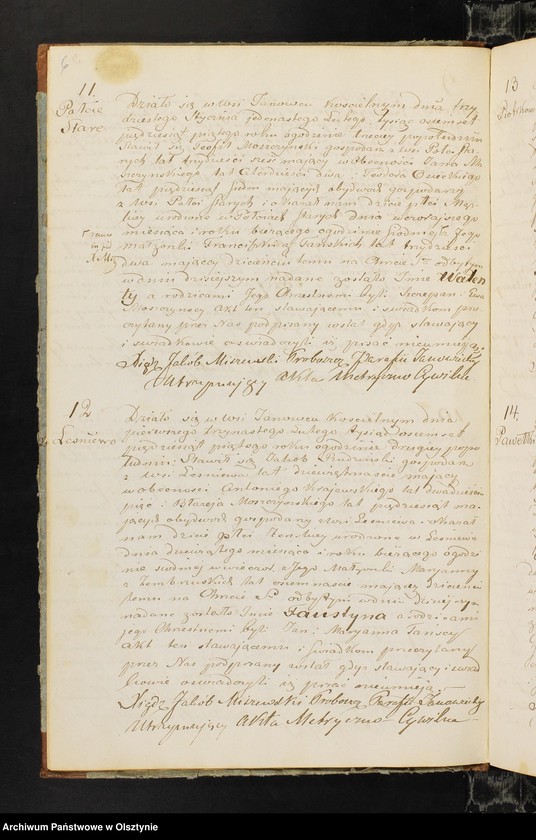 6
11.
Patoie
Stare
Działo się w Wsi Janowcu Kościelnym dnia trzy
dziestego Stycznia jedenastego Lutego Tysiąc osiemset
pięćdziesiąt piątego roku o godzinie trzeciej popołudniu
Stawił się Teofil Moszczyński gospodarz z Wsi
lat trzydzieści sześć mający w obecności Jana
lat czterdzieści dwa i Teodora Osieckiego
lat pięćdziesiąt siedem mających obydwóch gospodarzy
z Wsi Starych i okazał nam dziecię płci Męz
kiey urodzone w Starych dnia wczorajszego
miesiąca i roku bieżącego o godzinie z Jego
małżonki Franciszki z Tańskich lat trzydzieści
dwa mającej dziecięciu temu na Chrzcie S. odbytym
w dniu dzisiejszym nadane zostało Imie Walen
ty a rodzicami Jego Chrestnemi byli Szczepan i Ewa
Moszczyńscy Akt ten stawającemu i świadkom prze
czytany przez Nas podpisany został gdyż stawający
i świadkowie oświadczyli iż pisać nieumieją.
Xiądz Jakób Miszewski Proboszcz Parafii Janowieckiey
Utrzymujący Akta Metryczno Cywilne
12
Leśniewo
Działo się w Wsi Janowcu Kościelnym dnia
pierwszego trzynastego Lutego Tysiąc osiemset
pięćdziesiąt piątego roku o godzinie drugiey popo
łudniu: Stawił się Jakób Rudziński gospodarz
z Wsi Leśniewa lat dziewiętnaście mający
w obecności Antoniego Krajewskiego lat dwadzieścia
pięć i Błażeja Moszczyńskiego lat pięćdziesiąt ma
jących obydwóch gospodarzy z Wsi Leśniewa i okazał
nam dziecię płci Żeńskiey urodzone w Leśniewie
dnia dziewiątego miesiąca i roku bieżącego o godzi
nie siódmej wieczór z Jego Małżonki Maryanny
z lat osiemnaście mającej dziecięciu
temu na Chrzcie S. odbytym w dniu dzisiejszym
nadane zostało Imie Faustyna a rodzicami
jego Chrestnemi byli Jan i Maryanna Tańscy
Akt ten stawającemu i Świadkom przeczytany
przez Nas podpisany został gdyż stawający i świad
kowie oświadczyli iż pisać nieumieją.
Xiądz Jakób Miszewski Proboszcz Parafii Janowieckiey
Utrzymujący Akta Metryczno Cywilne
13
14
Archiwum Państwowe w Olsztynie